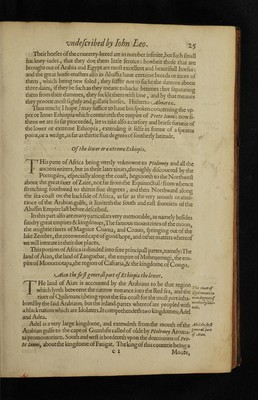 vndescribed by Iohn Leo.
25
Their horses of the countrey-breed are in number infinite, but such small
hackney-iades, that they doe them little seruice: howbeit those that are
brought out of Arabia and Egypt are most excellent and beautifull horses:
and the great horse-masters also in Abassia haue certaine breeds or races of
them, which being new foled, they suffer not to sucke the damme aboue
three daies, if they be such as they meane to backe betimes: but separating
them from their dammes, they suckle them with kine, and by that meanes
they prooue most sightly and gallant horses. Hitherto
Thus much, I hope, may suffice to haue bin spoken concerning the vp-
per or Inner Ethiopia which containeth the empire of Prete Ianni: now si-
thence we are so far proceeded, let vs take also a cursory and briefe suruey of
the lower or extreme Ethiopia, extending it selfe in forme of a speares
point, or a wedge, as far as thirtie fiue degrees of southerly latitude.
Of the lower or extreme Ethiopia.
THis parte of Africa being vtterly vnknowen to Ptolomey and all the
ancient writers, but in these later times throughly discouered by the
Portugales, especially along the coast, beginneth to the Northwest
about the great riuer of Zaire, not far from the Equinoctiall: from whence
stretching southward to thirtie fiue degrees, and then Northward along
the sea-coast on the backside of Africa, as far as the very mouth or en-
trance of the Arabian gulfe, it limiteth the south and east frontiers of the
Abassin Empire last before described.
In this part also are many particulars very memorable, as namely besides
sundry great empires & kingdomes, The famous mountaines of the moon,
the mightie riuers of Magnice Cuama, and Coauo, springing out of the
lake Zembre, the renowmed cape of good hope, and other matters whereof
we will intreate in their due places.
This portion of Africa is diuided into sixe principall partes, namely: The
land of Aian, the land of Zanguebar, the empire of Mohenemugi, the em-
pire of Monomotapa, the region of Cafraria, & the kingdome of Congo.
Aian the first generall part of Ethiopia the lower.
THe land of Aian is accounted by the Arabians to be that region
which lyeth betweene the narrow entrance into the Red sea, and the
riuer of Quilimanci; being vpon the sea-coast for the most part inha-
bited by the said Arabians; but the inland-partes thereof are peopled with
a black nation which are Idolaters. It comprehendeth two kingdomes; Adel
and Adea.
Adel is a very large kingdome, and extendeth from the mouth of the
Arabian gulfe to the cape of Guardafu called of olde by Ptolemey Aromá-
ta promontorium. South and west it bordereth vpon the dominions of Pre-
te Ianni, about the kingdome of Fatigar. The king of this countrie being a
C 1
Moore,